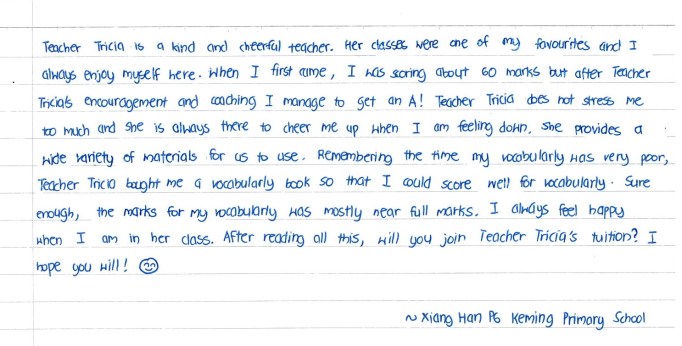 Teacher Tricia is a kind and cheerful teacher. Her classes were one of my favourites and I
always enjoy myself here. When I first came, I was scoring about 60 marks but after Teacher
Tricia's encouragement and coaching I manage to get an A! Teacher Tricia does not stress me
too much and she is always there to cheer me up when I am feeling down. She provides a
wide variety of materials for us to use. Remembering the time my vocabularly was very poor,
Teacher Tricia bought me a vocabularly book so that I could score well for vocabularly. Sure
enough, the marks for my vocabularly was mostly near full marks. I always feel happy
when I am in her class. After reading all this, will you join Teacher Tricia's tuition? I
hope you will!
~ Xiang Han P6 Keming Primary School